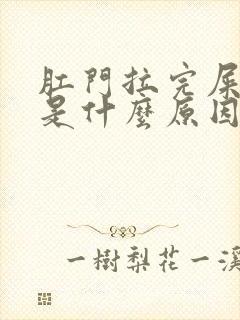 肛門拉完屎
是什麼原因
一樹梨花一溪